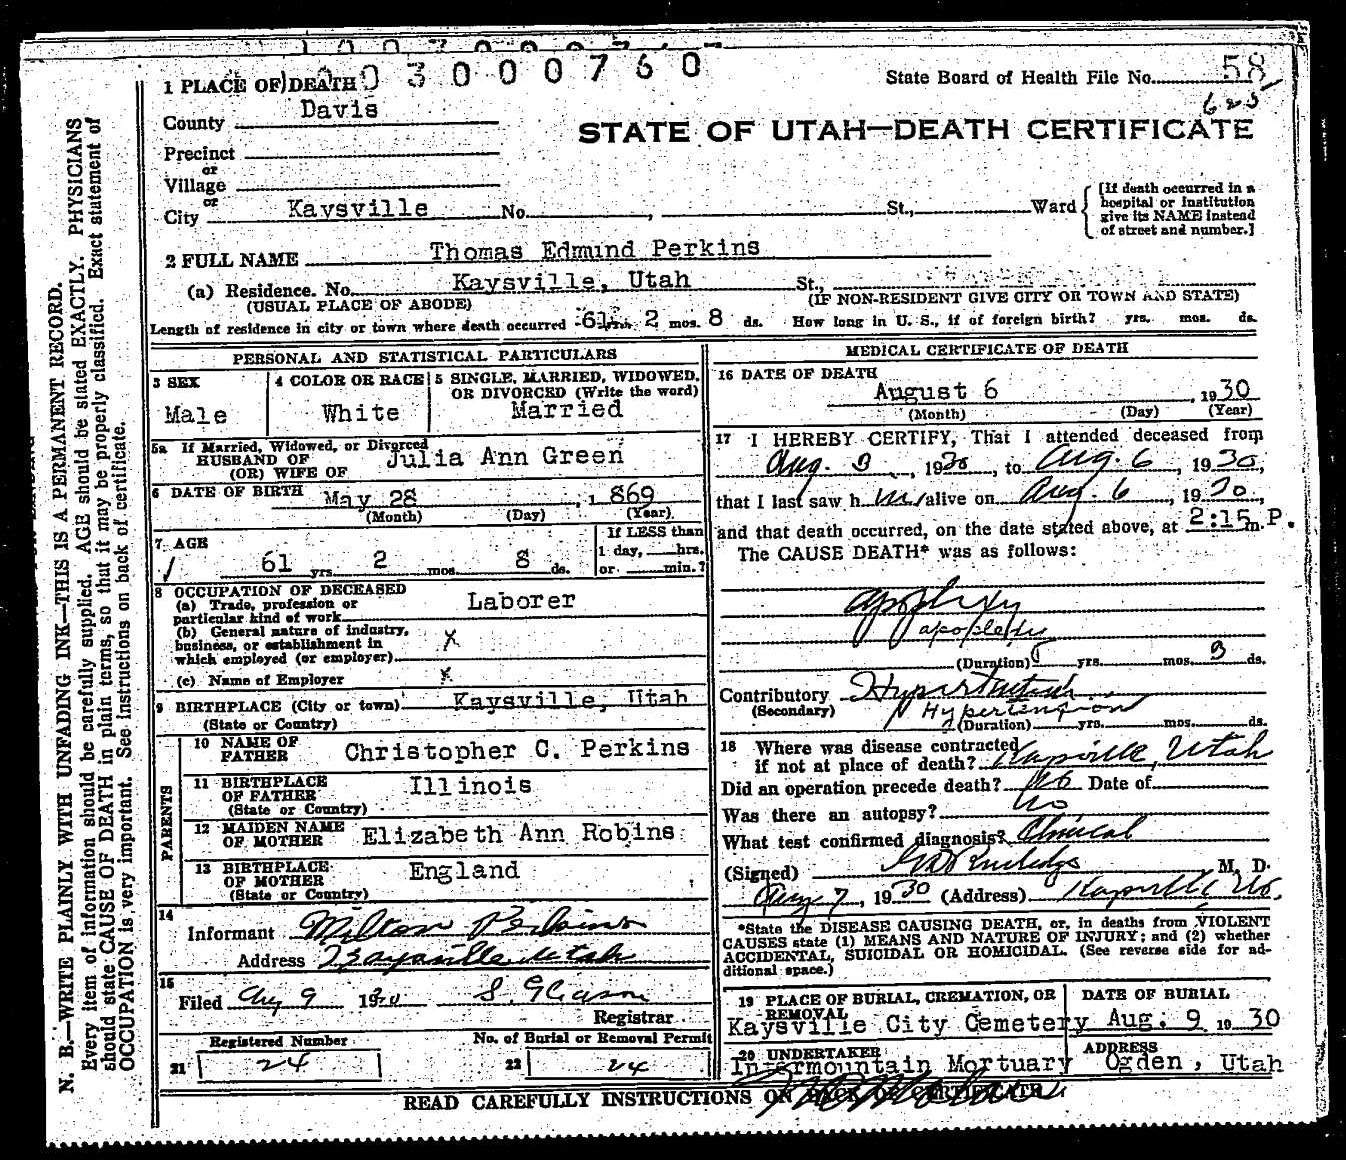 1 0 0 3 0 0 0 7 6 0
1 PLACE OF DEATH
State Board of Health File No. 58
625
County Davis
STATE OF UTAH—DEATH CERTIFICATE
Precinct
or
Village
or
City Kaysville No. , St., Ward
[If death occurred in a
hospital or institution
give its NAME instead
of street and number.]
2 FULL NAME Thomas Edmund Perkins
(a) Residence. No. Kaysville, Utah St.,
(USUAL PLACE OF ABODE) (IF NON-RESIDENT GIVE CITY OR TOWN AND STATE)
Length of residence in city or town where death occurred 61 yrs. 2 mos. 8 ds. How long in U. S., if of foreign birth? yrs. mos. ds.
PERSONAL AND STATISTICAL PARTICULARS
3 SEX
Male
4 COLOR OR RACE
White
5 SINGLE, MARRIED, WIDOWED,
OR DIVORCED (Write the word)
Married
5a If Married, Widowed, or Divorced
HUSBAND OF
(OR) WIFE OF
Julia Ann Green
6 DATE OF BIRTH May 28 , 1869
(Month) (Day) (Year)
7 AGE
61 yrs. 2 mos. 8 ds.
If LESS than
1 day, hrs.
or min.?
8 OCCUPATION OF DECEASED
(a) Trade, profession or
particular kind of work Laborer
(b) General nature of industry,
business, or establishment in
which employed (or employer) x
(c) Name of Employer x
9 BIRTHPLACE (City or town) Kaysville, Utah
(State or Country)
PARENTS
10 NAME OF
FATHER Christopher C. Perkins
11 BIRTHPLACE
OF FATHER Illinois
(State or Country)
12 MAIDEN NAME
OF MOTHER Elizabeth Ann Robins
13 BIRTHPLACE
OF MOTHER England
(State or Country)
14
Informant Milton Perkins
Address Kaysville Utah
15
Filed Aug 9 1930 S. Gleason
Registrar
Registered Number
21 24
No. of Burial or Removal Permit
22 24
MEDICAL CERTIFICATE OF DEATH
16 DATE OF DEATH
August 6 , 1930
(Month) (Day) (Year)
17 I HEREBY CERTIFY, That I attended deceased from
Aug. 3 , 1930, to Aug. 6 , 1930,
that I last saw h im alive on Aug. 6 , 1930,
and that death occurred, on the date stated above, at 2:15 m. P.
The CAUSE DEATH* was as follows:
Apoplexy
apoplexy
(Duration) yrs. mos. 3 ds.
Contributory Hypertension
(Secondary) Hypertension
(Duration) yrs. mos. ds.
18 Where was disease contracted
if not at place of death? Kaysville, Utah
Did an operation precede death? No Date of
Was there an autopsy? No
What test confirmed diagnosis? Clinical
(Signed) Rutledge M. D.
Aug 7, 1930 (Address) Kaysville Ut.
*State the DISEASE CAUSING DEATH, or, in deaths from VIOLENT
CAUSES state (1) MEANS AND NATURE OF INJURY; and (2) whether
ACCIDENTAL, SUICIDAL OR HOMICIDAL. (See reverse side for ad-
ditional space.)
19 PLACE OF BURIAL, CREMATION, OR
REMOVAL
Kaysville City Cemetery
DATE OF BURIAL
Aug. 9 1930
20 UNDERTAKER
Intermountain Mortuary
ADDRESS
Ogden, Utah
READ CAREFULLY INSTRUCTIONS ON BACK OF CERTIFICATE
N. B.—WRITE PLAINLY WITH UNFADING INK—THIS IS A PERMANENT RECORD.
Every item of information should be carefully supplied. AGE should be stated EXACTLY. PHYSICIANS
should state CAUSE OF DEATH in plain terms, so that it may be properly classified. Exact statement of
OCCUPATION is very important. See instructions on back of certificate.